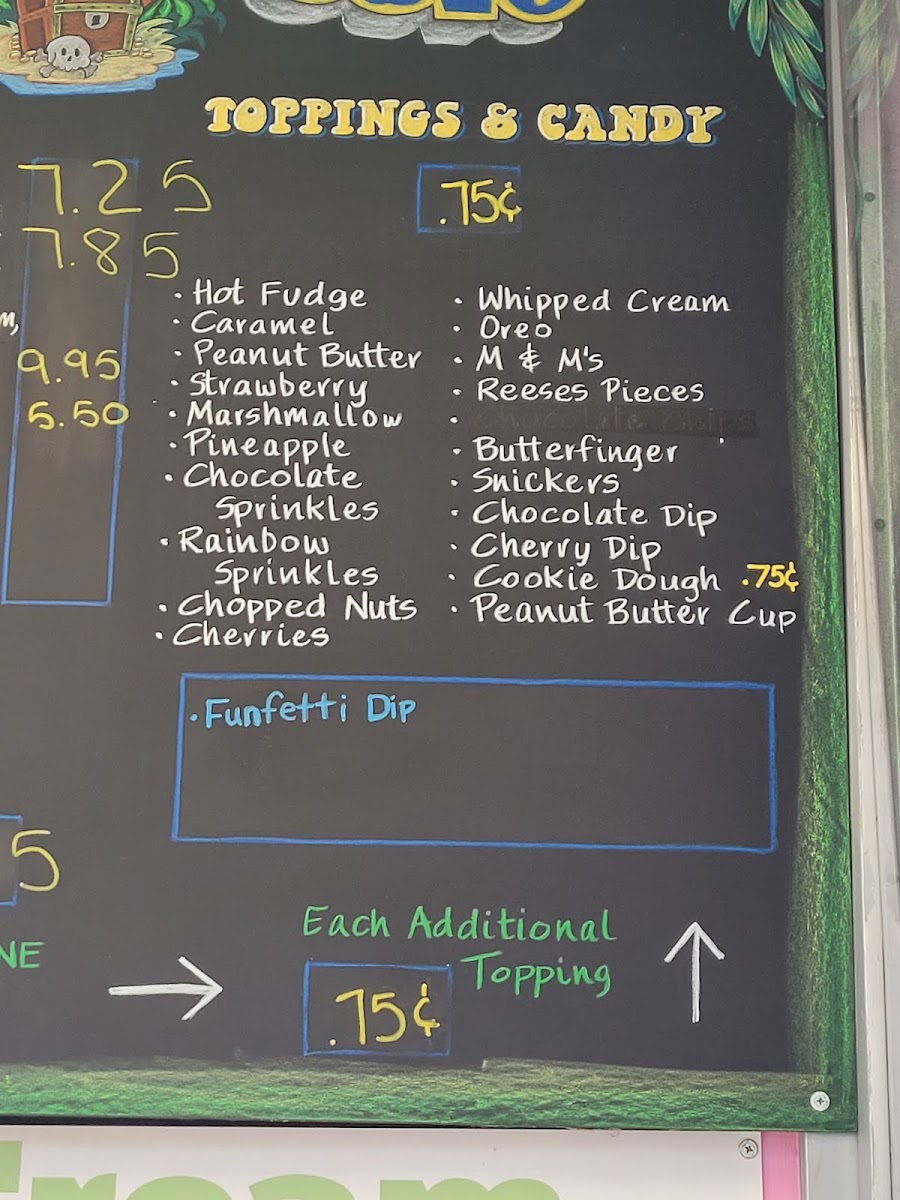 TOPPINGS & CANDY
.75¢
7.25
7.85
9.95
5.50
· Hot Fudge
· Caramel
· Peanut Butter
· Strawberry
· Marshmallow
· Pineapple
· Chocolate
Sprinkles
· Rainbow
Sprinkles
· Chopped Nuts
· Cherries
· Whipped Cream
· Oreo
· M & M's
· Reeses Pieces
· Chocolate Chips
· Butterfinger
· Snickers
· Chocolate Dip
· Cherry Dip
· Cookie Dough .75¢
· Peanut Butter Cup
· Funfetti Dip
5
NE
Each Additional
Topping
.75¢